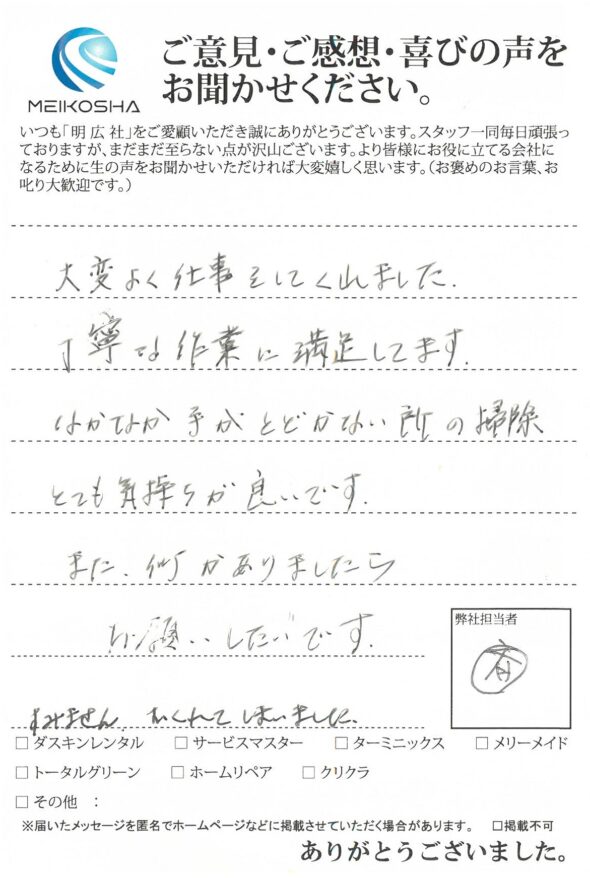 MEIKOSHA
ご意見・ご感想・喜びの声を
お聞かせください。
いつも「明広社」をご愛顧いただき誠にありがとうございます。スタッフ一同毎日頑張っ
ておりますが、まだまだ至らない点が沢山ございます。より皆様にお役に立てる会社に
なるために生の声をお聞かせいただければ大変嬉しく思います。（お褒めのお言葉、お
叱り大歓迎です。）
大変よく仕事をしてくれました.
丁寧な作業に満足してます.
なかなか手がとどかない所の掃除
とても気持ちが良いです.
また、何かありましたら
お願いしたいです.
すみません、おくれてしまいました.
弊社担当者
□ ダスキンレンタル □ サービスマスター □ ターミニックス □ メリーメイド
□ トータルグリーン □ ホームリペア □ クリクラ
□ その他 ：
※届いたメッセージを匿名でホームページなどに掲載させていただく場合があります。 □掲載不可
ありがとうございました。